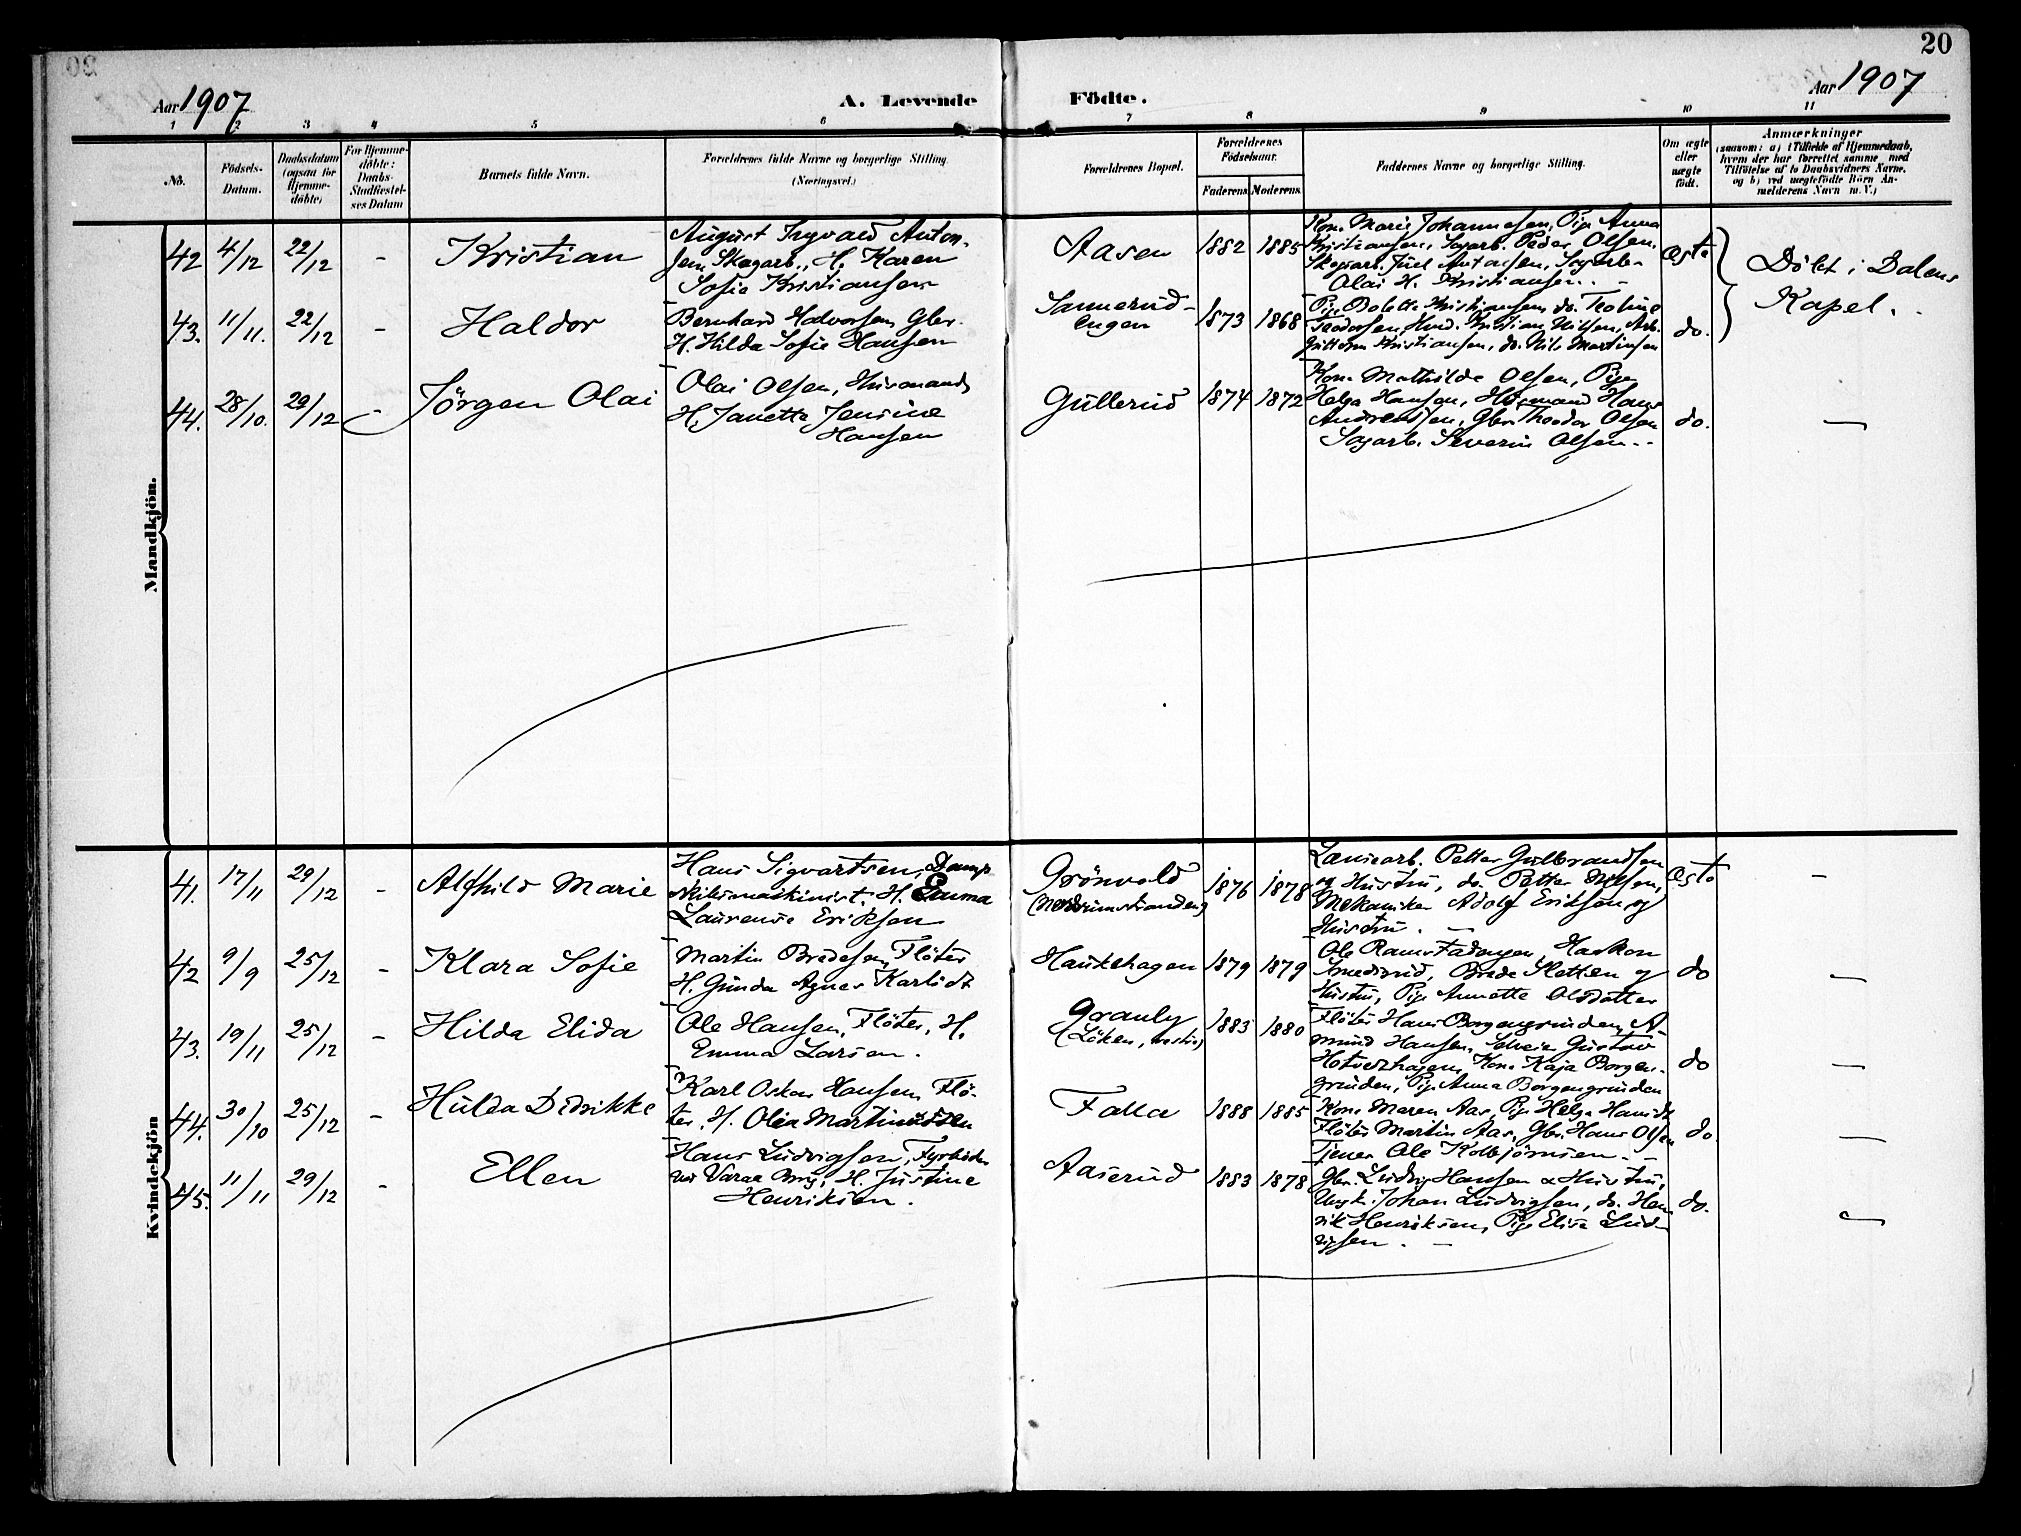 20
Aar 1907
A. Levende Födte.
Aar 1907
1 2 3 4 5 6 7 8 9 10 11
No.
Födsels-Datum.
Daabsdatum (ogsaa for Hjemmedöbte)
For Hjemmedöbte: Daabs-Stadfæstelses Datum
Barnets fulde Navn.
Forældrenes fulde Navne og borgerlige Stilling.
(Næringsvei.)
Forældrenes Bopæl.
Forældrenes Födselsaar.
Faderens Moderens
Faddernes Navne og borgerlige Stilling.
Om ægte eller uægte födt.
Anmærkninger
(saasom: a) i Tilfælde af Hjemmedaab,
hvem der har forrettet samme med
Tilföielse af to Daabsvidners Navne,
og b) ved uægtefödte Börn An-
melderens Navn m. V.)
Mandkjön.
42 4/12 22/12 - Kristian
August Ingvald Anton-
sen, Skogarb., H. Karen
Sofie Kristiansen
Aasen 1882 1885
Kone Marie Johannesen, Pige Anna
Kristiansen, Sagarb. Peder Olsen,
Skogarb. Juel Antonsen, Sagarb.
Olai H. Kristiansen.
Ægte
Döbt i Dalens
Kapel.
43. 11/11. 22/12 - Haldor
Bernhard Halvorsen, Gbr.
H. Hilda Sofie Hansen
Sannerud-
engen 1873 1868
Pige Bolette Kristiansen, do. Teoline
Teodorsen, Kristian Nilsen, Arb.
Guttorm Kristiansen, do. Nils Martinsen
do.
44. 28/10. 29/12 - Jörgen Olai
Olai Olsen, Husmand,
H. Janette Jensine
Hansen
Gullerud 1874 1872
Kone Mathilde Olsen, Pige
Helga Hansen, Husmand Hans
Andreassen, Gbr. Theodor Olsen
Sagarb. Severin Olsen.
do. —
Kvindekjön
41. 17/11 29/12 - Alfhild Marie
Hans Sigvartsen, Damp-
skibsmaskinist, H. Emma
Laurense Eriksen
Grönvold
1876 1878
Petter Gulbrandsen
og Hustru, do. Petter Nilsen,
Mekaniker Adolf Eriksen og
Hustru. —
Ægte -
42 9/9 25/12 - Klara Sofie
Martin Bredesen, Flöter
H. Gunda Agnes Karlsdt
Haukehagen 1879 1879
Ole Ramstadengen, Haakon
Smedsrud, Brede Sletten og
Hustru, Pige Annette Olsdatter
do —
43. 19/11 25/12 - Hilda Elida
Ole Hansen, Flöter, H.
Emma Larsen.
Granly
(Löken, vestre) 1883 1880
Flöter Hans Borgengrinden, A-
mund Hansen, Gustav
Hotvedhagen, Kone Kaja Borgen-
grinden, Pige Anna Borgengrinden
do —
44. 30/10 25/12 - Hulda Didrikke
Karl Oskar Hansen, Flö-
ter, H. Olea Martinussen
Falla 1888 1885
Kone Maren Aas, Pige Helga Hansdt
Flöter Martin Aas, Gbr. Hans Olsen
Tjener Ole Kolbjörnsen. —
do. —
45. 11/11 29/12 - Ellen
Hans Ludvigsen, Fyrböder
ved Varae Brug, H. Justine
Henriksen.
Aaserud 1883 1878
Gbr. Ludvig Hansen & Hustru,
Ungk. Johan Ludvigsen, do. Hen-
rik Henriksen, Pige Elise Lud-
vigsen. —
do. —